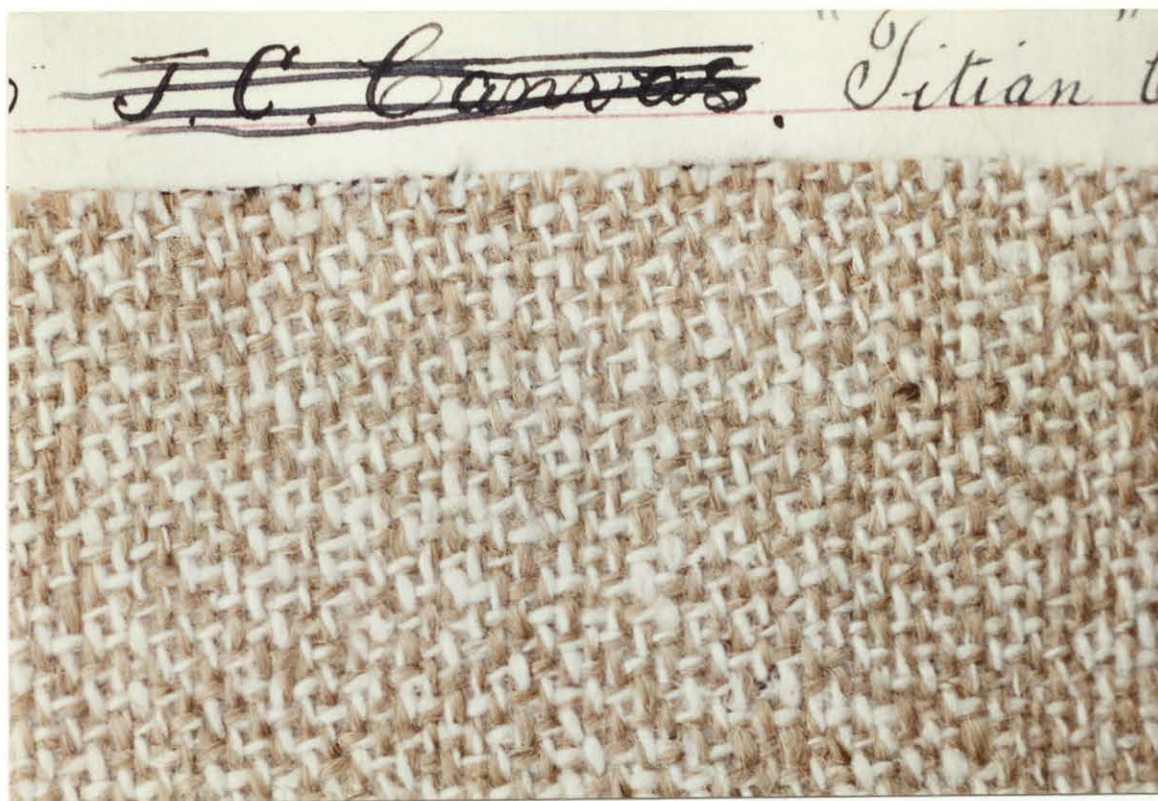 J. C. Canvas. "Titian"